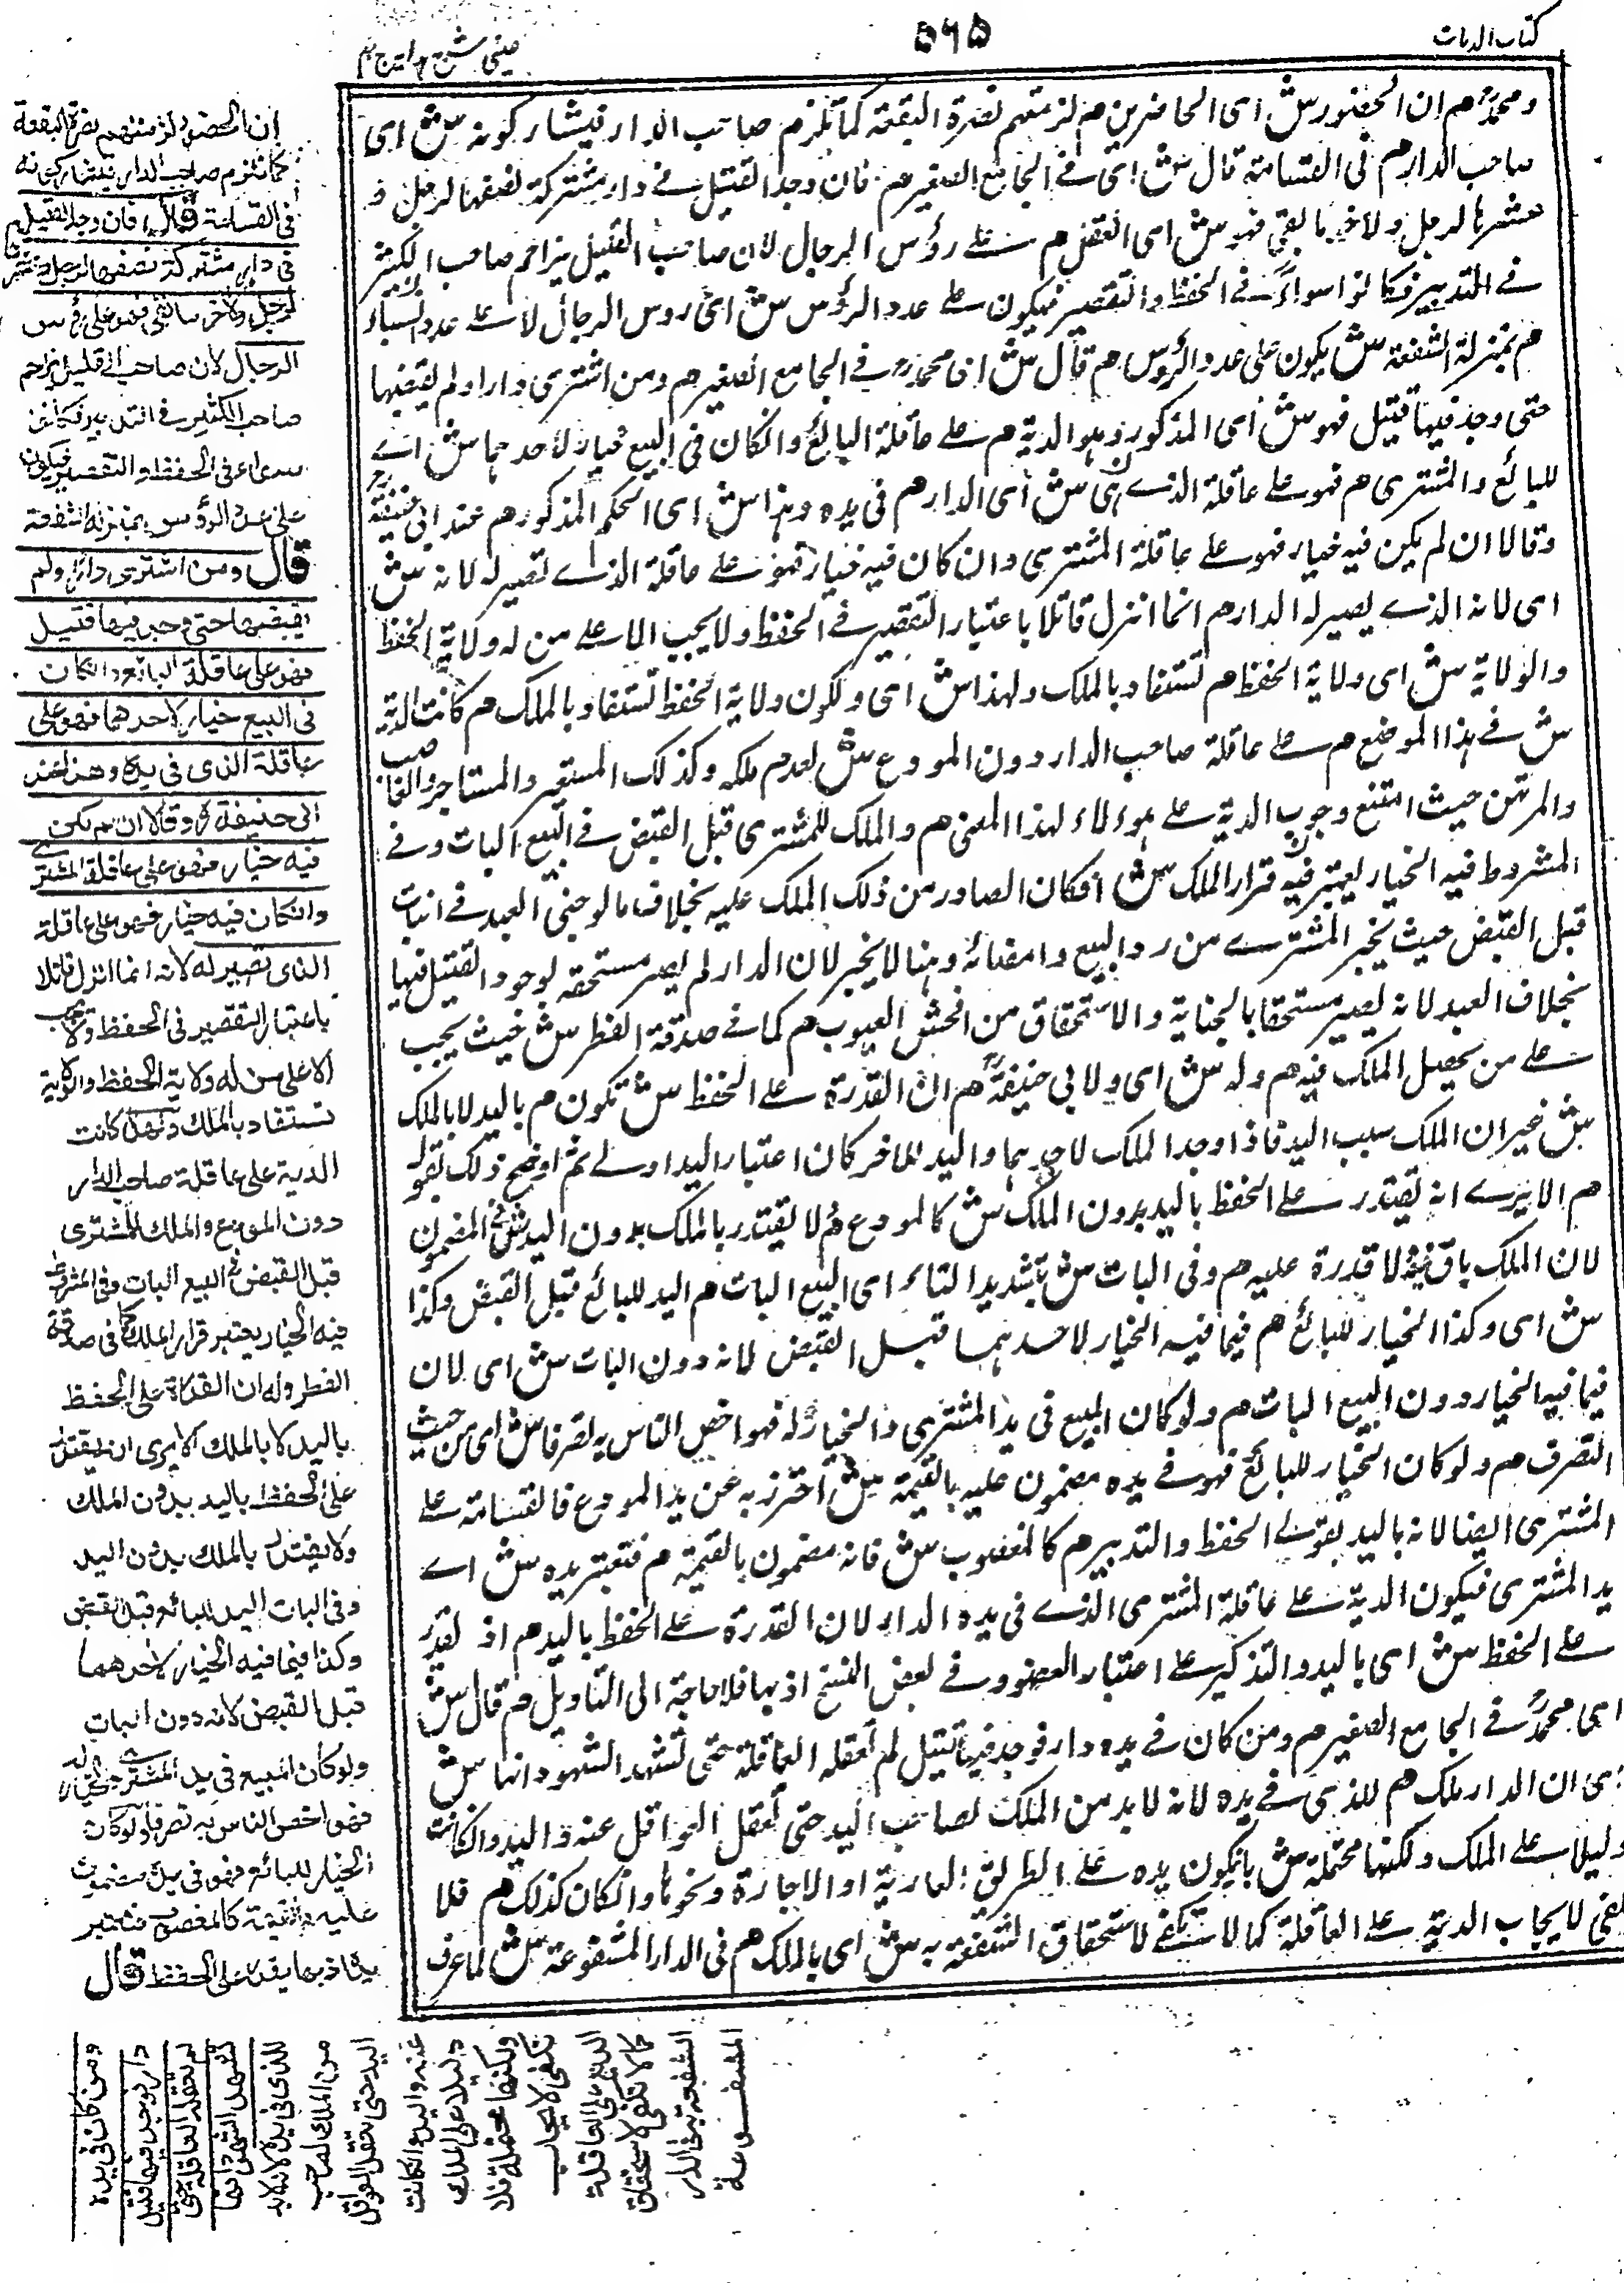 كتاب الديات
٥٦٥
عينى شرح هدايه ج ٤
ومحمدؒ هم ان الحضور ش اى الحاضرين هم لزمتهم نصرة البقعة كما تلزم صاحب الدار فيشاركونه ش اى
صاحب الدار هم فى القسامة قال ش اى فے الجامع الصغير هم فان وجد القتيل فے دار مشتركة نصفها لرجل و
عشرها لرجل ولآخر ما بقى فهو ش اى العقل هم علے رؤس الرجال لان صاحب القليل يزاحم صاحب الكثير
فے التدبير فكانوا سواء فے الحفظ والتقصير فيكون علے عدد الرؤس ش اى روس الرجال لا علے عدد الانصباء
هم بمنزلة الشفعة ش يكون على عدد الرؤس هم قال ش اى محمدؒ فے الجامع الصغير هم ومن اشترى دارا ولم يقبضها
حتى وجد فيها قتيل فهو ش اى المذكور وهو الدية هم علے عاقلة البائع وانكان فى البيع خيار لاحدهما ش اے
للبائع والمشترى هم فهو علے عاقلة الذے هى ش اى الدار هم فى يده وهذا ش اى الحكم المذكور هم عند ابى حنيفةؒ
وقالا ان لم يكن فيه خيار فهو علے عاقلة المشترى وان كان فيه خيار فهو علے عاقلة الذے تصير له لانه ش
اى لانه الذے يصير له الدار هم انما انزل قاتلا باعتبار التقصير فے الحفظ ولا يجب الا علے من له ولاية الحفظ
والولاية ش اى ولاية الحفظ هم تستفاد بالملك ولهذا ش اى ولكون ولاية الحفظ تستفاد بالملك هم كانت الدية
ش فے هذا الموضع هم علے عاقلة صاحب الدار دون المودع ش لعدم ملكه وكذلك المستعير والمستاجر والغاصب
والمرتهن حيث امتنع وجوب الدية علے هولاء لهذا المعنى هم والملك للمشترى قبل القبض فے البيع البات وفے
المشروط فيه الخيار يعتبر فيه قرار الملك ش افكان الصادر من ذلك الملك عليه بخلاف ما لو جنى العبد فے البات
قبل القبض حيث يخير المشترے من رد البيع وامضائه وهنا لا يخير لان الدار لم يصر مستحقه لوجود القتيل فيها
بخلاف العبد لانه يصير مستحقا بالجناية والاستحقاق من افحش العيوب هم كما فے صدقة الفطر ش حيث يجب
علے من يحصل الملك فيه هم وله ش اى ولابى حنيفةؒ هم ان القدرة علے الحفظ ش تكون هم باليد لا بالملك
ش غير ان الملك سبب اليد فاذا وجد الملك لاحدهما واليد للآخر كان اعتبار اليد اولے ثم اوضح ذلك بقوله
هم الا يرے انه يقتدر علے الحفظ باليد بدون الملك ش كالمودع هم ولا يقتدر بالملك بدون اليد ش فى المغصوب
لان الملك باق فيه ولا قدرة عليه هم وفى البات ش بتشديد التاء اى البيع البات هم اليد للبائع قبل القبض وكذا
ش اى وكذا الخيار للبائع هم فيما فيه الخيار لاحدهما قبل القبض لانه دون البات ش اى لان
فيما فيه الخيار دون البيع البات هم ولو كان المبيع فى يد المشترى والخيار له فهو اخص الناس به تصرفا ش اى من حيث
التصرف هم ولو كان الخيار للبائع فهو فے يده مضمون عليه بالقيمة ش احترز به عن يد المودع فالقسامة علے
المشترى ايضا لانه باليد يقوے الحفظ والتدبير هم كالمغصوب ش فانه مضمون بالقيمة هم فتعتبر يده ش اے
يد المشترى فيكون الدية علے عاقلة المشترى الذے فى يده الدار لان القدرة علے الحفظ باليد هم اذ يقدر
علے الحفظ ش اى باليد والتذكير علے اعتبار العضو وفے بعض النسخ اذ بها فلا حاجة الى التاويل هم قال ش
اى محمدؒ فے الجامع الصغير هم ومن كان فے يده دار فوجد فيها قتيل لم تعقله العاقلة حتى تشهد الشهود انها ش
اى ان الدار ملك هم للذى فے يده لانه لا بد من الملك لصاحب اليد حتى تعقل العواقل عنه واليد وانكانت
دليلا علے الملك ولكنها محتملة ش بان يكون يده علے الطريق العارية او الاجارة ونحوها وانكان كذلك هم فلا
تكفى لايجاب الدية علے العاقلة كما لا تكفى لاستحقاق الشفعة به ش اى بالملك هم فى الدار المشفوعة ش لما عرف
ان الحضور لزمتهم نصرة البقعة
كما تلزم صاحب الدار فيشاركونه
فى القسامة قال فان وجد القتيل
فى دار مشتركة نصفها لرجل وعشرها
لرجل ولآخر ما بقى فهو على رؤس
الرجال لان صاحب القليل يزاحم
صاحب الكثير فے التدبير فكانوا
سواء فى الحفظ والتقصير فيكون
على عدد الرؤس بمنزلة الشفعة
قال ومن اشترى دارا ولم
يقبضها حتى وجد فيها قتيل
فهو على عاقلة البائع وانكان
فى البيع خيار لاحدهما فهو على
عاقلة الذى فى يده وهذا عند
ابى حنيفةؒ وقالا ان لم يكن
فيه خيار فهو على عاقلة المشترے
وانكان فيه خيار فهو على عاقلة
الذى تصير له لانه انما انزل قاتلا
باعتبار التقصير فى الحفظ ولا يجب
الا على من له ولاية الحفظ والولاية
تستفاد بالملك ولهذا كانت
الدية على عاقلة صاحب الدار
دون المودع والملك للمشترى
قبل القبض فى البيع البات وفى المشروط
فيه الخيار يعتبر قرار الملك كما فى صدقة
الفطر وله ان القدرة على الحفظ
باليد لا بالملك الا يرى انه يقتدر
على الحفظ باليد بدون الملك
ولا يقتدر بالملك بدون اليد
وفى البات اليد للبائع قبل القبض
وكذا فيما فيه الخيار لاحدهما
قبل القبض لانه دون البات
ولو كان المبيع فى يد المشترے والخيار له
فهو اخص الناس به تصرفا ولو كان
الخيار للبائع فهو فى يده مضمون
عليه بالقيمة كالمغصوب فتعتبر
يده اذ بها يقدر على الحفظ قال
ومن كان فى يده
دار فوجد فيها قتيل
لم تعقله العاقلة حتى
تشهد الشهود انها
للذى فى يده لانه لا بد
من الملك لصاحب
اليد حتى تعقل العواقل
عنه واليد وانكانت
دليلا على الملك
ولكنها محتملة فلا
تكفى لايجاب
الدية على العاقلة
كما لا تكفى لاستحقاق
الشفعة به فى الدار
المشفوعة